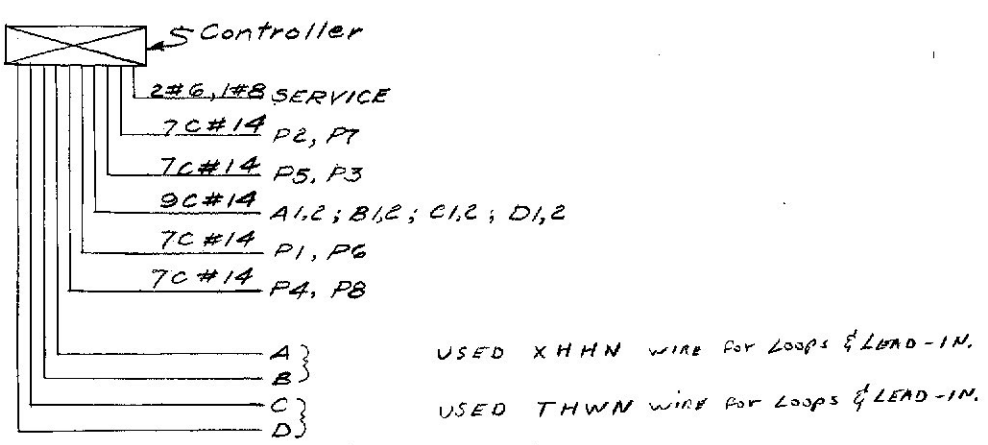 Controller
2#6, 1#8 SERVICE
7C#14 P2, P7
7C#14 P5, P3
9C#14 A1,2; B1,2; C1,2; D1,2
7C#14 P1, P6
7C#14 P4, P8
A USED XHHN WIRE for Loops & LEAD-IN.
B
C USED THWN wire for Loops & LEAD-IN.
D